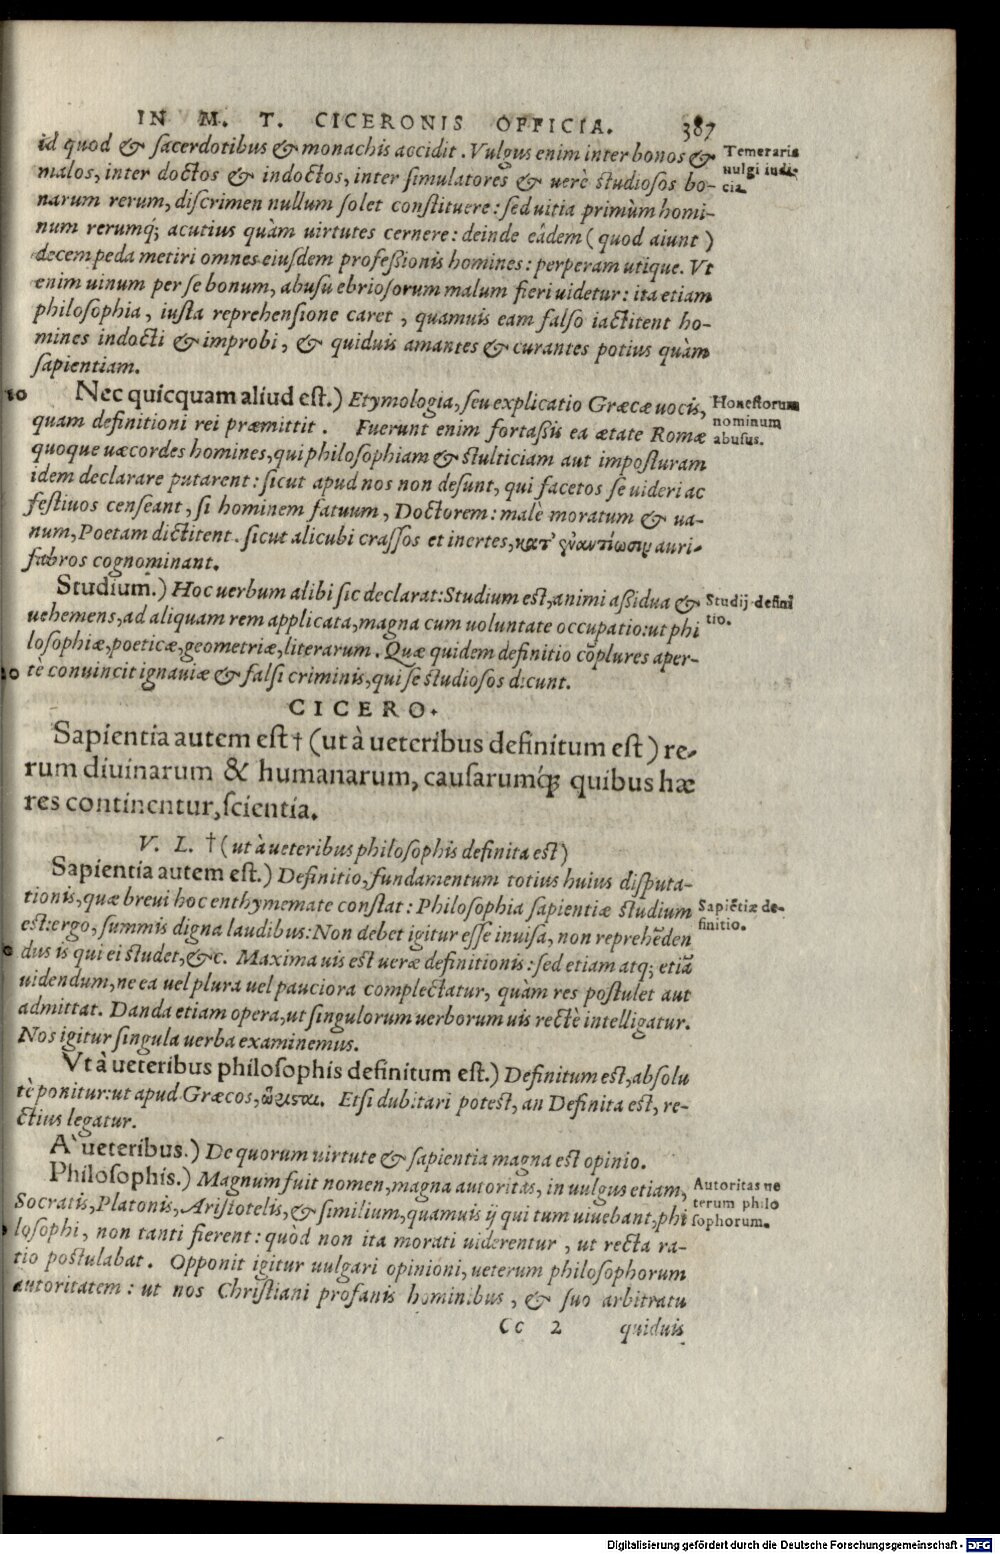 IN M. T. CICERONIS OFFICIA. 387
id quod & sacerdotibus & monachis accidit. Vulgus enim inter bonos &
malos, inter doctos & indoctos, inter simulatores & uerè studiosos bo-
narum rerum, discrimen nullum solet constituere: sed uitia primùm homi-
num rerumq́; acutius quàm uirtutes cernere: deinde eâdem (quod aiunt)
decempeda metiri omnes eiusdem professionis homines: perperam utique. Vt
enim uinum per se bonum, abusu ebriosorum malum fieri uidetur: ita etiam
philosophia, iusta reprehensione caret, quamuis eam falso iactitent ho-
mines indocti & improbi, & quiduis amantes & curantes potius quàm
sapientiam.
Temeraria
uulgi iudi-
cia.
10 Nec quicquam aliud est.) Etymologia, seu explicatio Græcæ uocis,
quam definitioni rei præmittit. Fuerunt enim fortassis ea ætate Romæ
quoque uæcordes homines, qui philosophiam & stulticiam aut imposturam
idem declarare putarent: sicut apud nos non desunt, qui facetos se uideri ac
festiuos censeant, si hominem fatuum, Doctorem: malè moratum & ua-
num, Poetam dictitent. sicut alicubi crassos et inertes, κατ' ἐναντίωσιν auri-
fabros cognominant.
Honestorum
nominum
abusus.
Studium.) Hoc uerbum alibi sic declarat: Studium est, animi assidua &
uehemens, ad aliquam rem applicata, magna cum uoluntate occupatio: ut phi
losophiæ, poeticæ, geometriæ, literarum. Quæ quidem definitio cōplures aper-
20 tè conuincit ignauiæ & falsi criminis, qui se studiosos dicunt.
Studij defini
tio.
CICERO.
Sapientia autem est† (ut à ueteribus definitum est) re-
rum diuinarum & humanarum, causarumq́; quibus hæ
res continentur, scientia.
V. L. † (ut à ueteribus philosophis definita est)
Sapientia autem est.) Definitio, fundamentum totius huius disputa-
tionis, quæ breui hoc enthymemate constat: Philosophia sapientiæ studium
est: ergo, summis digna laudibus: Non debet igitur esse inuisa, non reprehēden
dus is qui ei studet, &c. Maxima uis est ueræ definitionis: sed etiam atq; etiā
uidendum, ne ea uel plura uel pauciora complectatur, quàm res postulet aut
admittat. Danda etiam opera, ut singulorum uerborum uis rectè intelligatur.
Nos igitur singula uerba examinemus.
Sapiētiæ de-
finitio.
Vt à ueteribus philosophis definitum est.) Definitum est, absolu
tè ponitur: ut apud Græcos, ὥρισται. Etsi dubitari potest, an Definita est, re-
ctius legatur.
A` ueteribus.) De quorum uirtute & sapientia magna est opinio.
Philosophis.) Magnum fuit nomen, magna autoritas, in uulgus etiam,
Socratis, Platonis, Aristotelis, & similium, quamuis ij qui tum uiuebant, phi
losophi, non tanti fierent: quòd non ita morati uiderentur, ut recta ra-
tio postulabat. Opponit igitur uulgari opinioni, ueterum philosophorum
autoritatem: ut nos Christiani profanis hominibus, & suo arbitratu
Autoritas ue
terum philo
sophorum.
Cc 2 quiduis
Digitalisierung gefördert durch die Deutsche Forschungsgemeinschaft - DFG